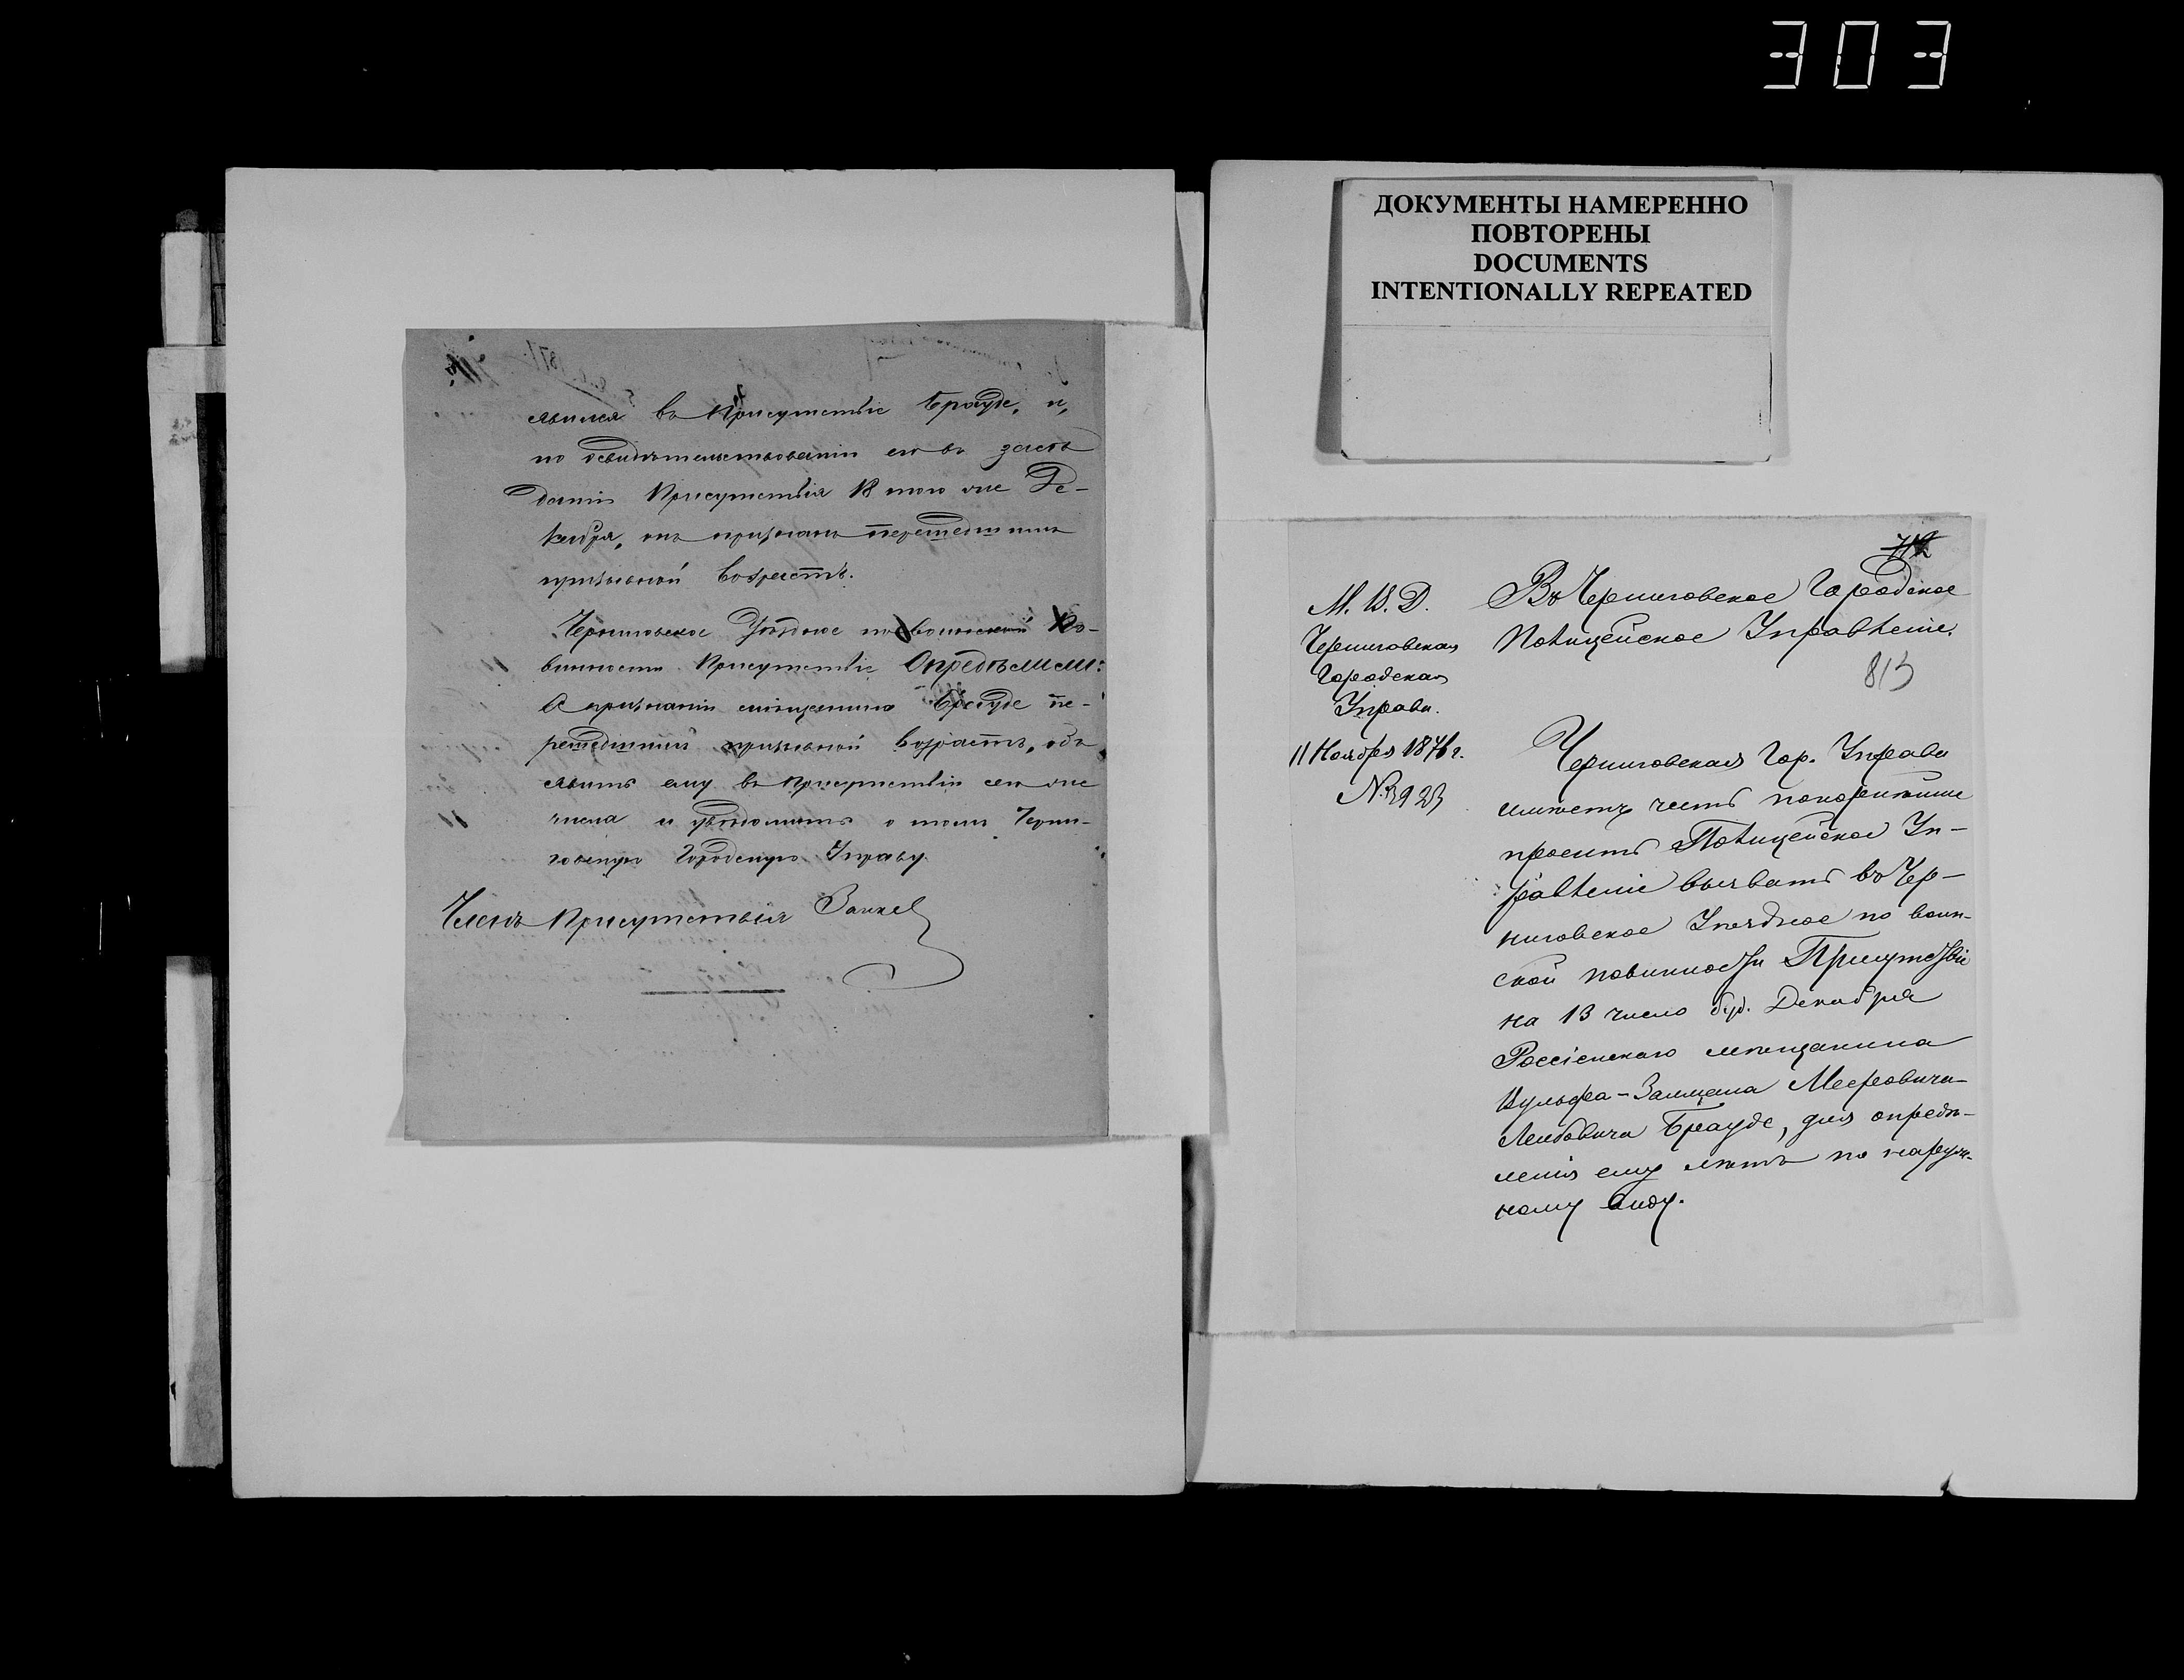 303
явился въ Присутствіе Брауде, и,
по освидѣтельствованіи его въ засѣ
даніи Присутствія 13 того же Де-
кабря, онъ признанъ перешедшимъ
призывной возрастъ.
Черниговское Уѣздное по воинской По-
винности Присутствіе Опредѣлили:
О признаніи мѣщанина Брауде пе-
решедшимъ призывной возрастъ, объ
явить ему въ Присутствіи сего же
числа и увѣдомить о томъ Черни-
говскую Городскую Управу.
Членъ Присутствія
ДОКУМЕНТЫ НАМЕРЕННО
ПОВТОРЕНЫ
DOCUMENTS
INTENTIONALLY REPEATED
М. В. Д.
Черниговская
Городская
Управа.
11 Ноября 1876 г.
№ 3923
Въ Черниговское Городское
Полицейское Управленіе.
813
Черниговская Гор. Управа
имѣетъ честь покорнѣйше
просить Полицейское Уп-
равленіе вызвать въ Чер-
ниговское Уѣздное по воин-
ской повинности Присутствіе
на 13 число буд. Декабря
Россіенскаго мѣщанина
Вульфа-Залмана Мееровича-
Лейбовича Брауде, для опредѣ-
ленія ему лѣтъ по наруж-
ному виду.